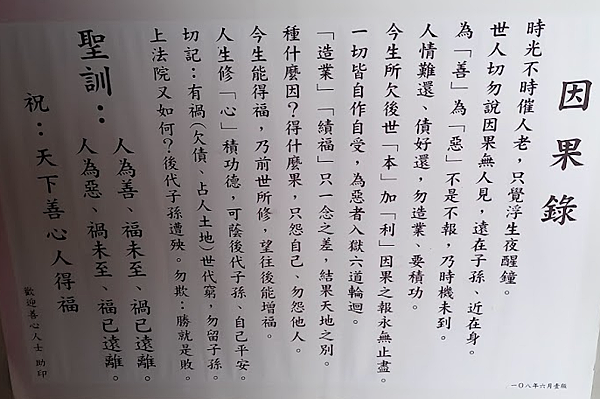 因果錄
時光不時催人老，只覺浮生夜醒鐘。
世人切勿說因果無人見，遠在子孫、近在身。
為「善」為「惡」不是不報，乃時機未到。
人情難還、債好還，勿造業、要積功。
今生所欠後世「本」加「利」因果之報永無止盡。
一切皆自作自受，為惡者入獄六道輪迴。
「造業」「績福」只一念之差，結果天地之別。
種什麼因？得什麼果，只怨自己、勿怨他人。
今生能得福，乃前世所修，望往後能增福。
人生修「心」積功德，可陰後代子孫、自己平安。
切記：有禍(欠債、占人土地)世代窮，勿留子孫。
上法院又如何？後代子孫遭殃。勿欺：勝就是敗。
聖訓：
人為善、福未至、禍已遠離。
人為惡、禍未至、福已遠離。
祝：天下善心人得福
歡迎善心人士 助印
一○八年六月壹版